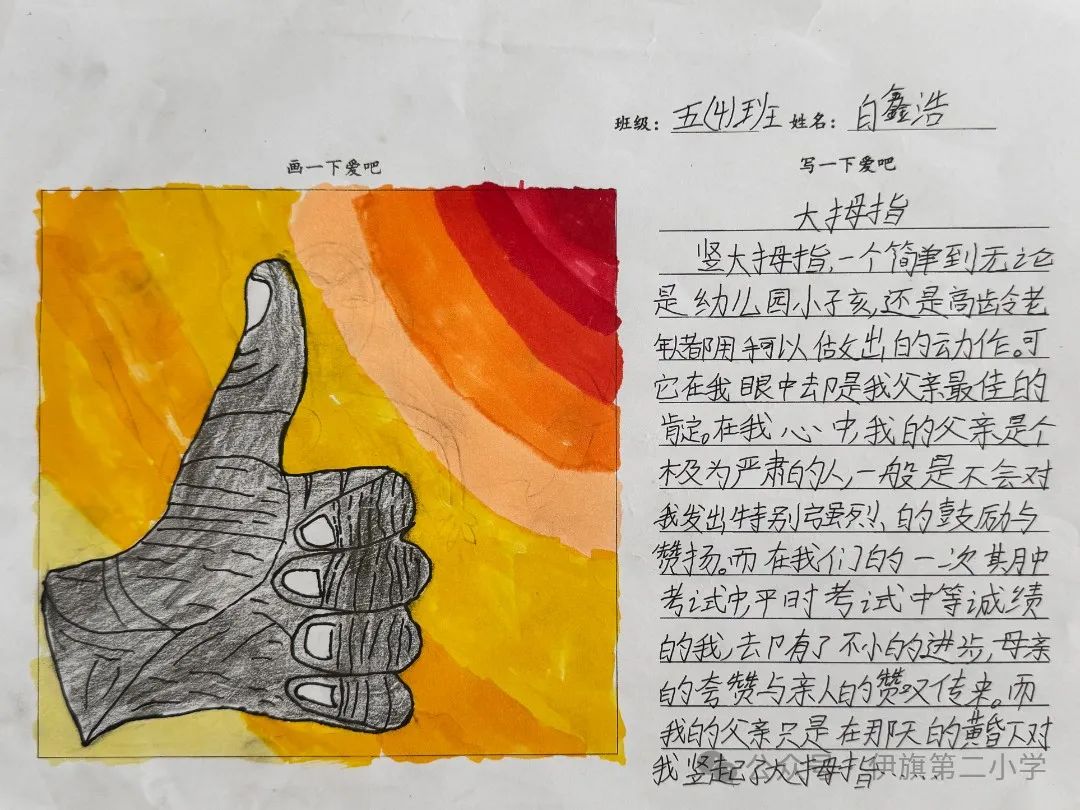 班级：五(4)班 姓名：白鑫浩
画一下爱吧
写一下爱吧
大拇指
竖大拇指,一个简单到无论
是幼儿园小子亥,还是高龄老
年都用手可以做出的动作。可
它在我眼中却是我父亲最佳的
肯定。在我心中,我的父亲是个
极为严肃的人,一般是不会对
我发出特别强烈、的鼓励与
赞扬。而在我们的一次其月中
考试中,平时考试中等诚绩
的我,却有了不小的进步,母亲
的夸赞与亲人的赞叹传来。而
我的父亲只是在那天的黄昏下对
我竖起了大拇指······
公众号 伊旗第二小学